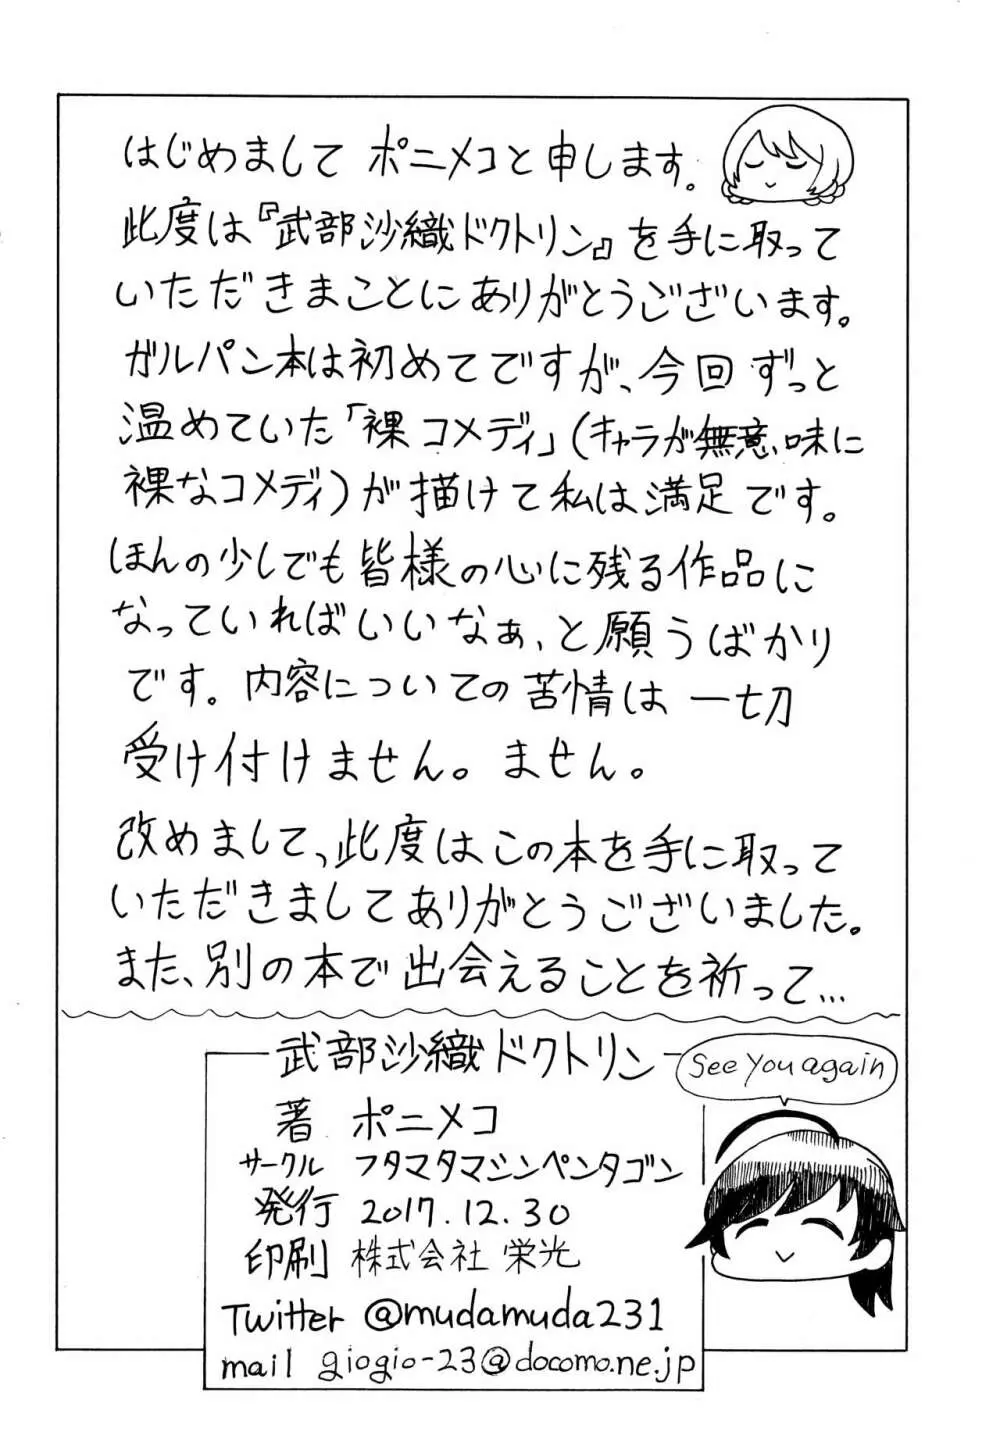 はじめまして ポニメコと申します。
此度は『武部沙織ドクトリン』を手に取って
いただきまことにありがとうございます。
ガルパン本は初めてですが、今回ずっと
温めていた「裸コメディ」(キャラが無意味に
裸なコメディ)が描けて私は満足です。
ほんの少しでも皆様の心に残る作品に
なっていればいいなぁ、と願うばかり
です。内容についての苦情は一切
受け付けません。ません。
改めまして、此度はこの本を手に取って
いただきましてありがとうございました。
また、別の本で出会えることを祈って…
武部沙織ドクトリン
See you again
著 ポニメコ
サークル フタマタマシンペンタゴン
発行 2017.12.30
印刷 株式会社 栄光
Twitter @mudamuda231
mail giogio-23@docomo.ne.jp